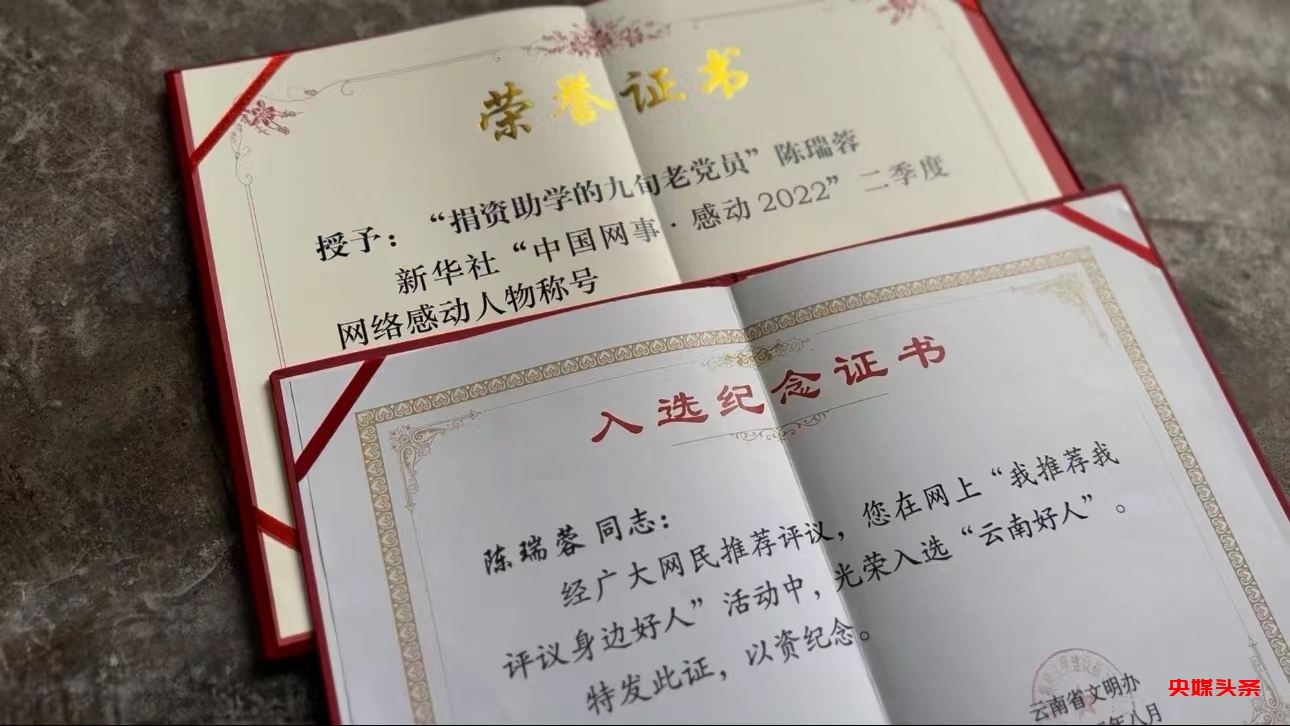 荣誉证书
授予：“捐资助学的九旬老党员”陈瑞蓉
新华社“中国网事·感动2022”二季度
网络感动人物称号
入选纪念证书
陈瑞蓉 同志：
经广大网民推荐评议，您在网上“我推荐我
评议身边好人”活动中，光荣入选“云南好人”。
特发此证，以资纪念。
云南省文明办
年八月
央媒头条